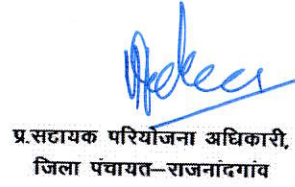 प्र.सहायक परियोजना अधिकारी,
जिला पंचायत–राजनांदगांव